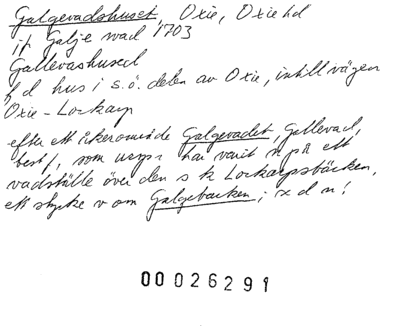 Galgevadshuset, Oxie, Oxie hd
jf Galje wad 1703
Gallevashused
f d hus i s.ö. delen av Oxie, intill vägen
Oxie - Lockarp
efter ett åkerområde Galgevadet, Gallevad,
best f, som urspr har varit n på ett
vadställe över den s k Lockarpsbäcken,
ett stycke v om Galgebacken; x d n!
00026291